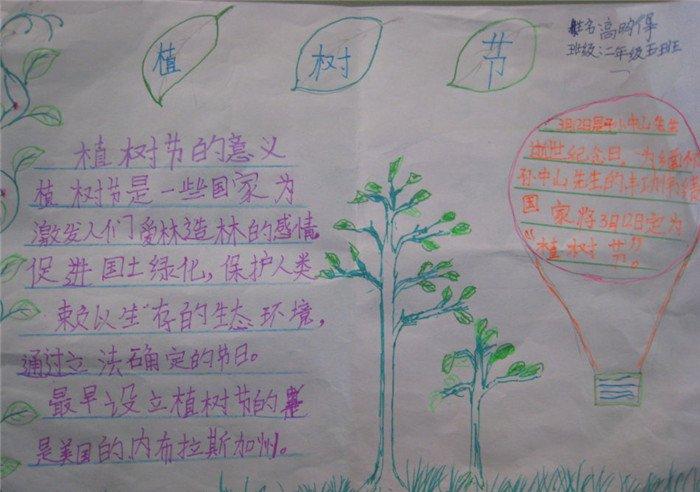 植 树 节
姓名 高昀得
班级:二年级五班
植树节的意义
植树节是一些国家为
激发人们爱林造林的感情
促进国土绿化,保护人类
赖以生存的生态环境,
通过立法确定的节日。
最早设立植树节的
是美国的内布拉斯加州。
3月12日是孙中山先生
逝世纪念日,为
孙中山先生的
国家将3月12日定为
“植树节”。